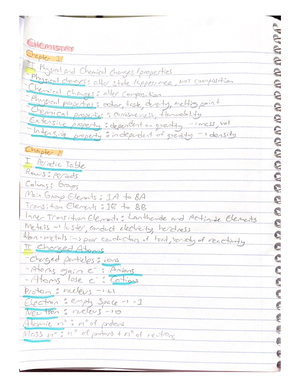 Chemistry
Chapter 1:
I. Physical and Chemical changes/properties
- Physical changes: alter state/appearance, not composition
- Chemical changes: alter composition
- Physical properties: odor, taste, density, melting point
- Chemical properties: corrosiveness, flammability
- Extensive property: dependent on quantity → mass, vol
- Intensive property: independent of quantity → density
Chapter 2
I. Periodic Table
Rows: Periods
Columns: Groups
Main Group Elements: 1A to 8A
Transition Elements: to 8B
Inner Transition Elements: Lanthanide and Actinide Elements
Metals → luster, conduct electricity, hardness
Non-metals → poor conductors of heat, variety of reactivity
II Charged Atoms
- Charged particles: ions
- Atoms gain e⁻: Anions
- Atoms lose e⁻: Cations
Proton: nucleus → +1
Electron: empty space → -1
Neutron: nucleus → 0
Atomic nº: nº of protons
Mass nº: nº of protons + nº of neutrons